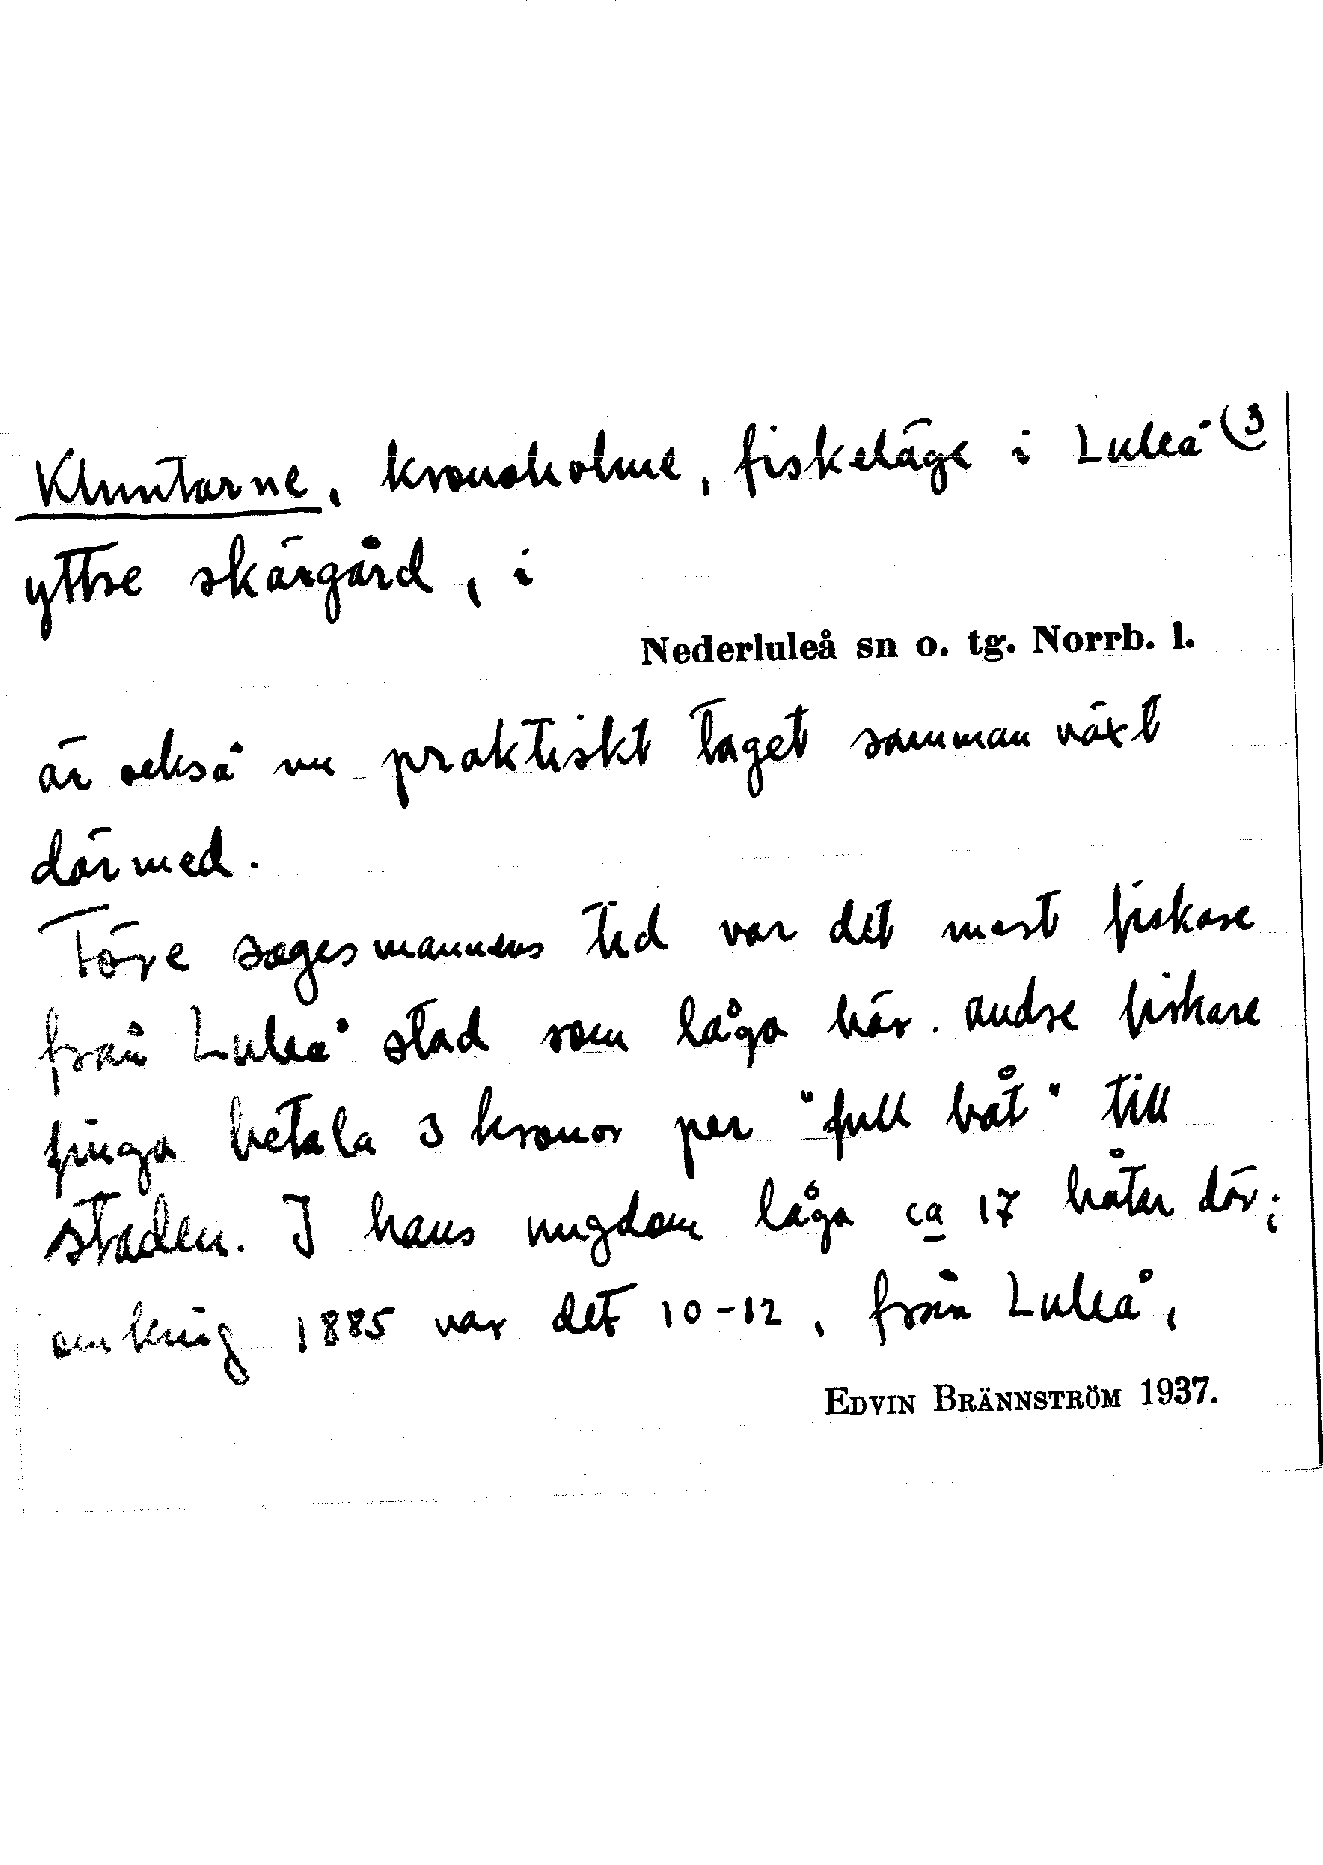 Kluntarne, kronoholme, fiskeläge i Luleå (3
yttre skärgård, i
Nederluleå sn o. tg. Norrb. l.
är också nu praktiskt taget samman växt
därmed.
Före sagesmannens tid var det mest fiskare
från Luleå stad som låga här. Andre fiskare
finga betala 3 kronor per "full båt" till
staden. I hans ungdom låga ca 17 båtar där;
omkring 1885 var det 10-12, från Luleå,
EDVIN BRÄNNSTRÖM 1937.